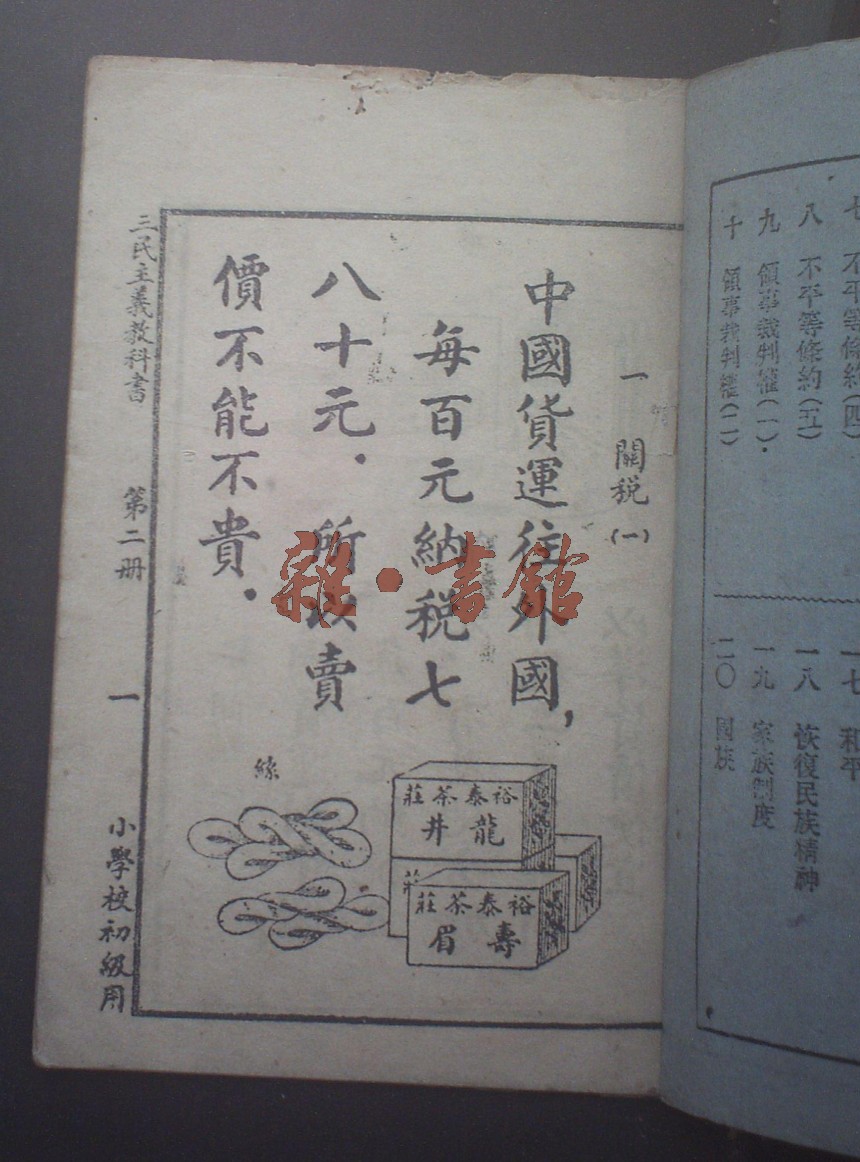 七 不平等條約(四)
八 不平等條約(五)
九 領事裁判權(一)
十 領事裁判權(二)
一七 和平
一八 恢復民族精神
一九 家族制度
二〇 國族
一 關稅(一)
中國貨運往外國,
每百元納稅七
八十元.所以賣
價不能不貴.
裕泰茶莊
龍井
莊
裕泰茶莊
壽眉
絲
三民主義教科書 第二册 一 小學校初級用
雜·書館